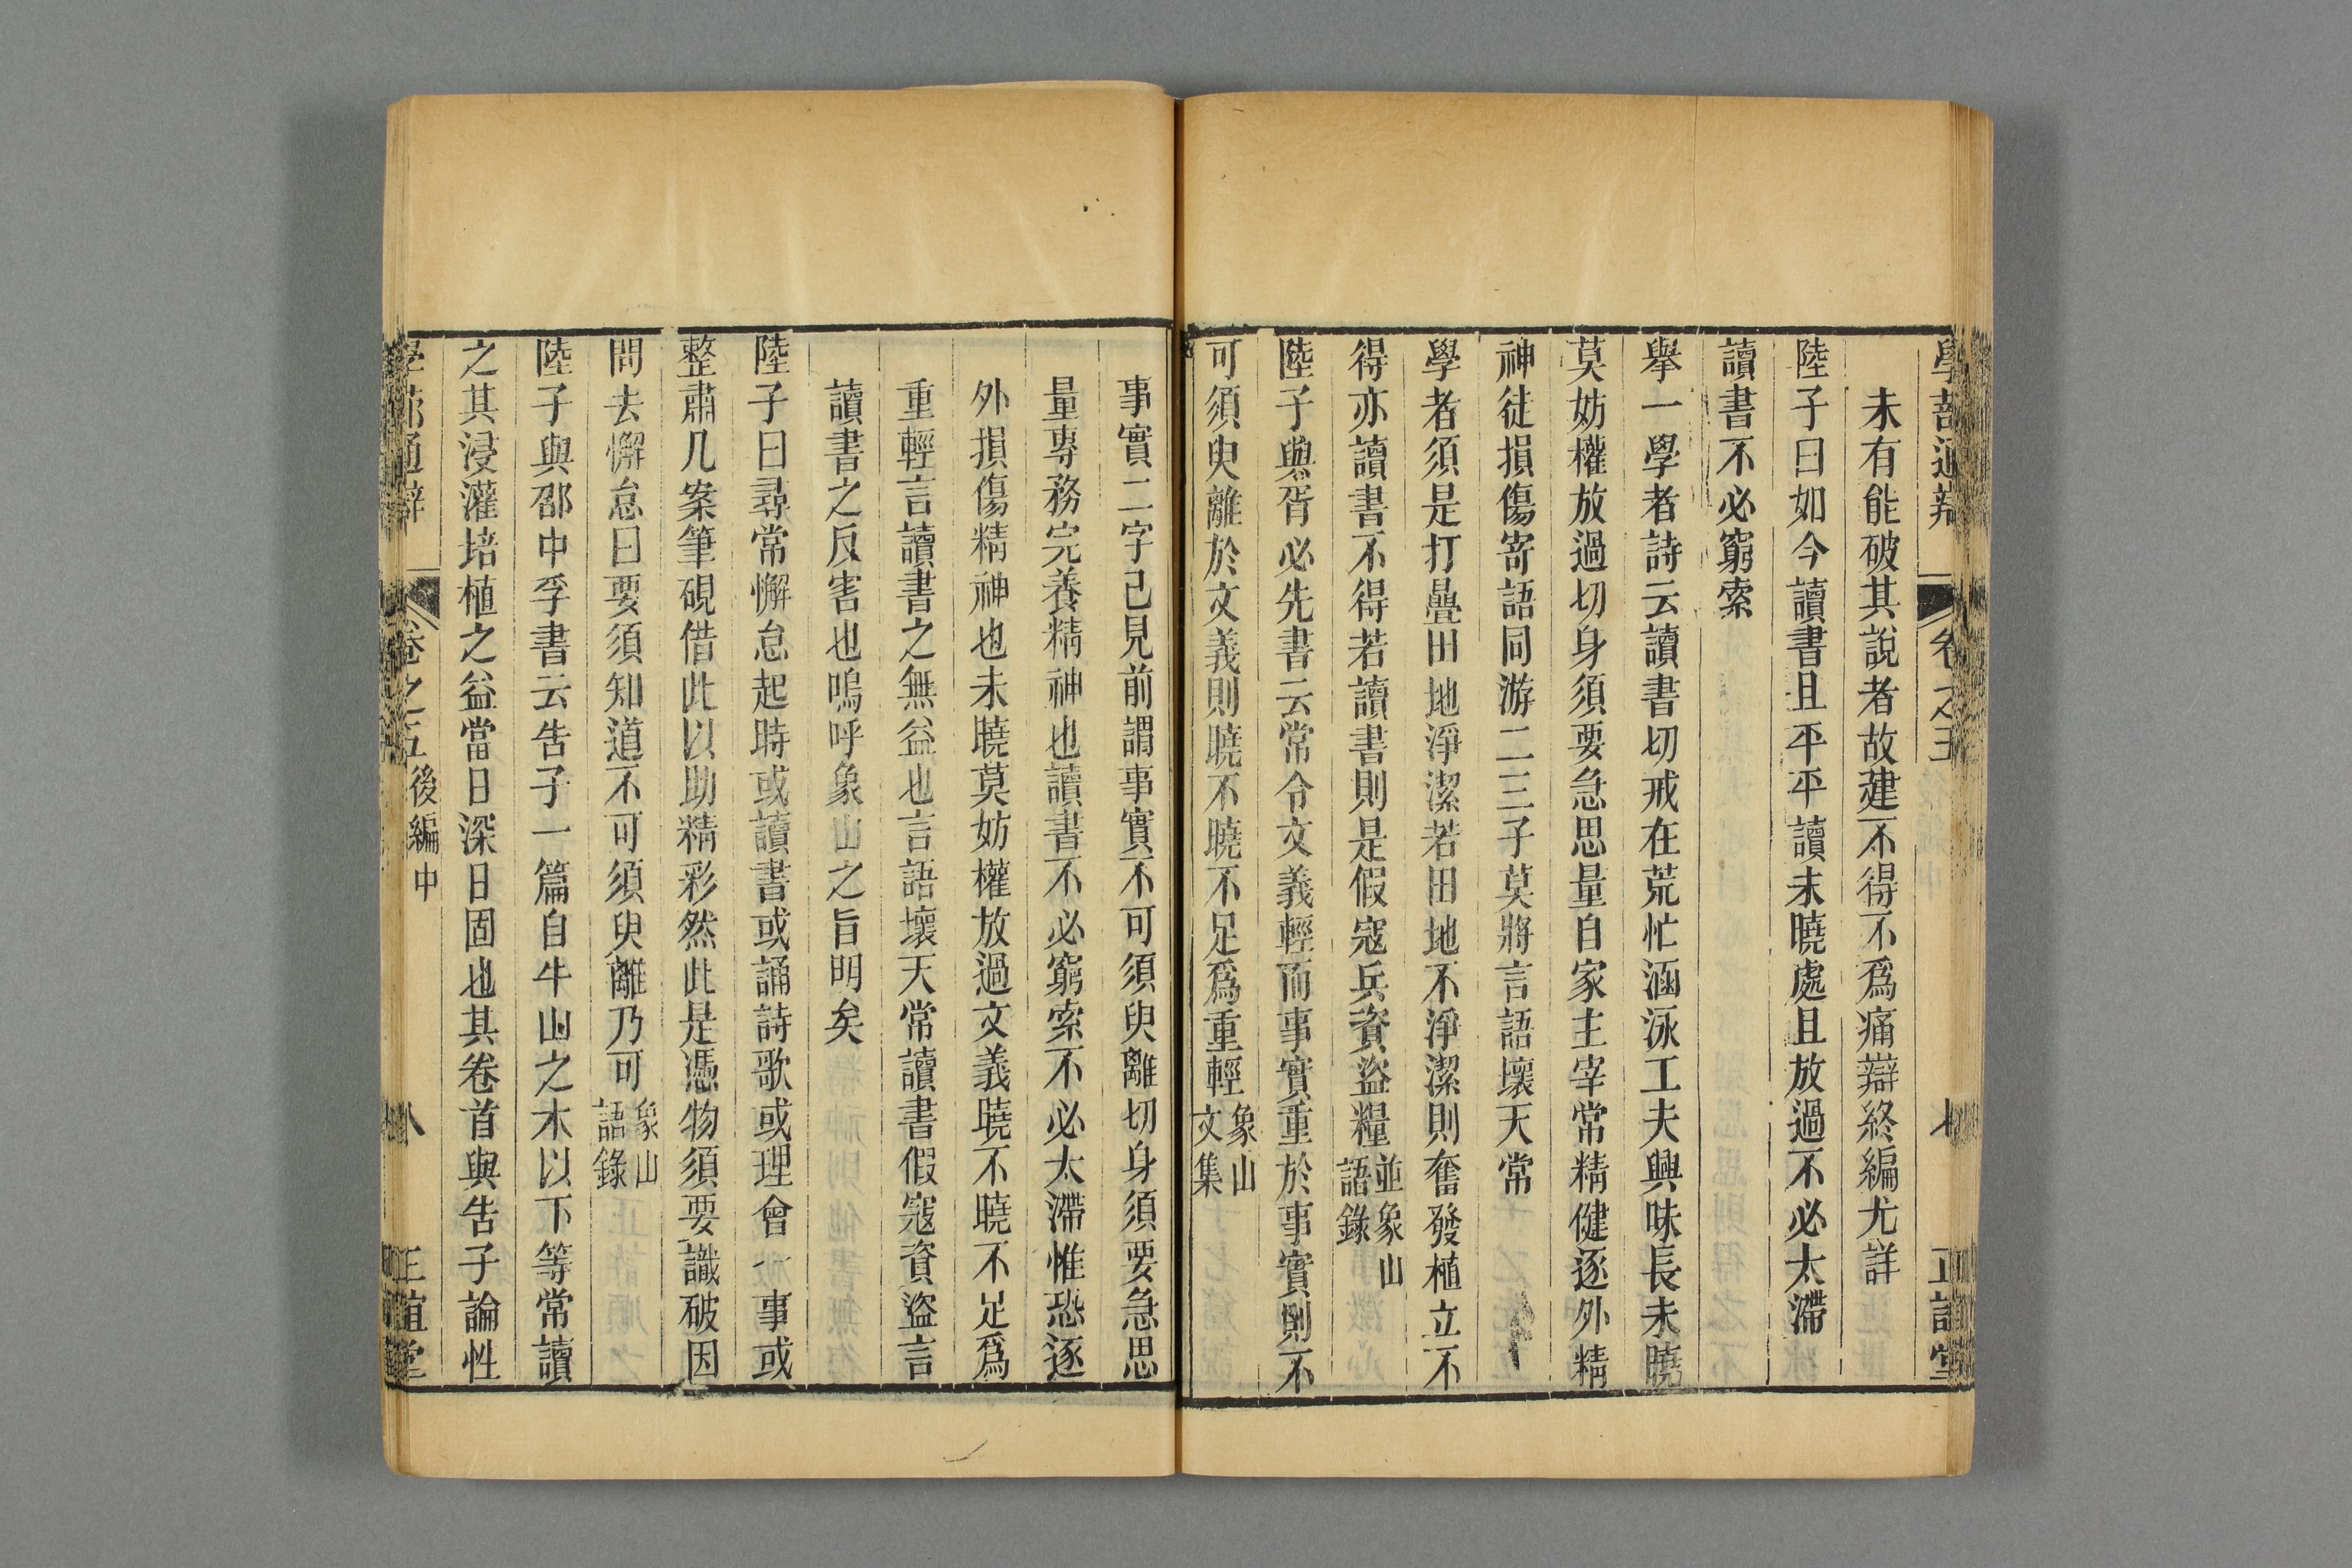 學蔀通辨 卷之五 七 正誼堂
未有能破其說者故建不得不爲痛辯終編尤詳
陸子曰如今讀書且平平讀未曉處且放過不必太滯
讀書不必窮索
舉一學者詩云讀書切戒在荒忙涵泳工夫興味長未曉
莫妨權放過切身須要急思量自家主宰常精健逐外精
神徒損傷寄語同游二三子莫將言語壞天常
學者須是打疊田地淨潔若田地不淨潔則奮發植立不
得亦讀書不得若讀書則是假寇兵資盜糧並象山語錄
陸子與胥必先書云常令文義輕而事實重於事實則不
可須臾離於文義則曉不曉不足爲重輕象山文集
事實二字已見前謂事實不可須臾離切身須要急思
量專務完養精神也讀書不必窮索不必太滯惟恐逐
外損傷精神也未曉莫妨權放過文義曉不曉不足爲
重輕言讀書之無益也言語壞天常讀書假寇資盜言
讀書之反害也嗚呼象山之旨明矣
陸子曰尋常懈怠起時或讀書或誦詩歌或理會一事或
整肅几案筆硯借此以助精彩然此是憑物須要識破因
問去懈怠曰要須知道不可須臾離乃可象山語錄
陸子與邵中孚書云告子一篇自牛山之木以下等常讀
之其浸灌培植之益當日深日固也其卷首與告子論性
學蔀通辯 卷之五後編中 八 正誼堂